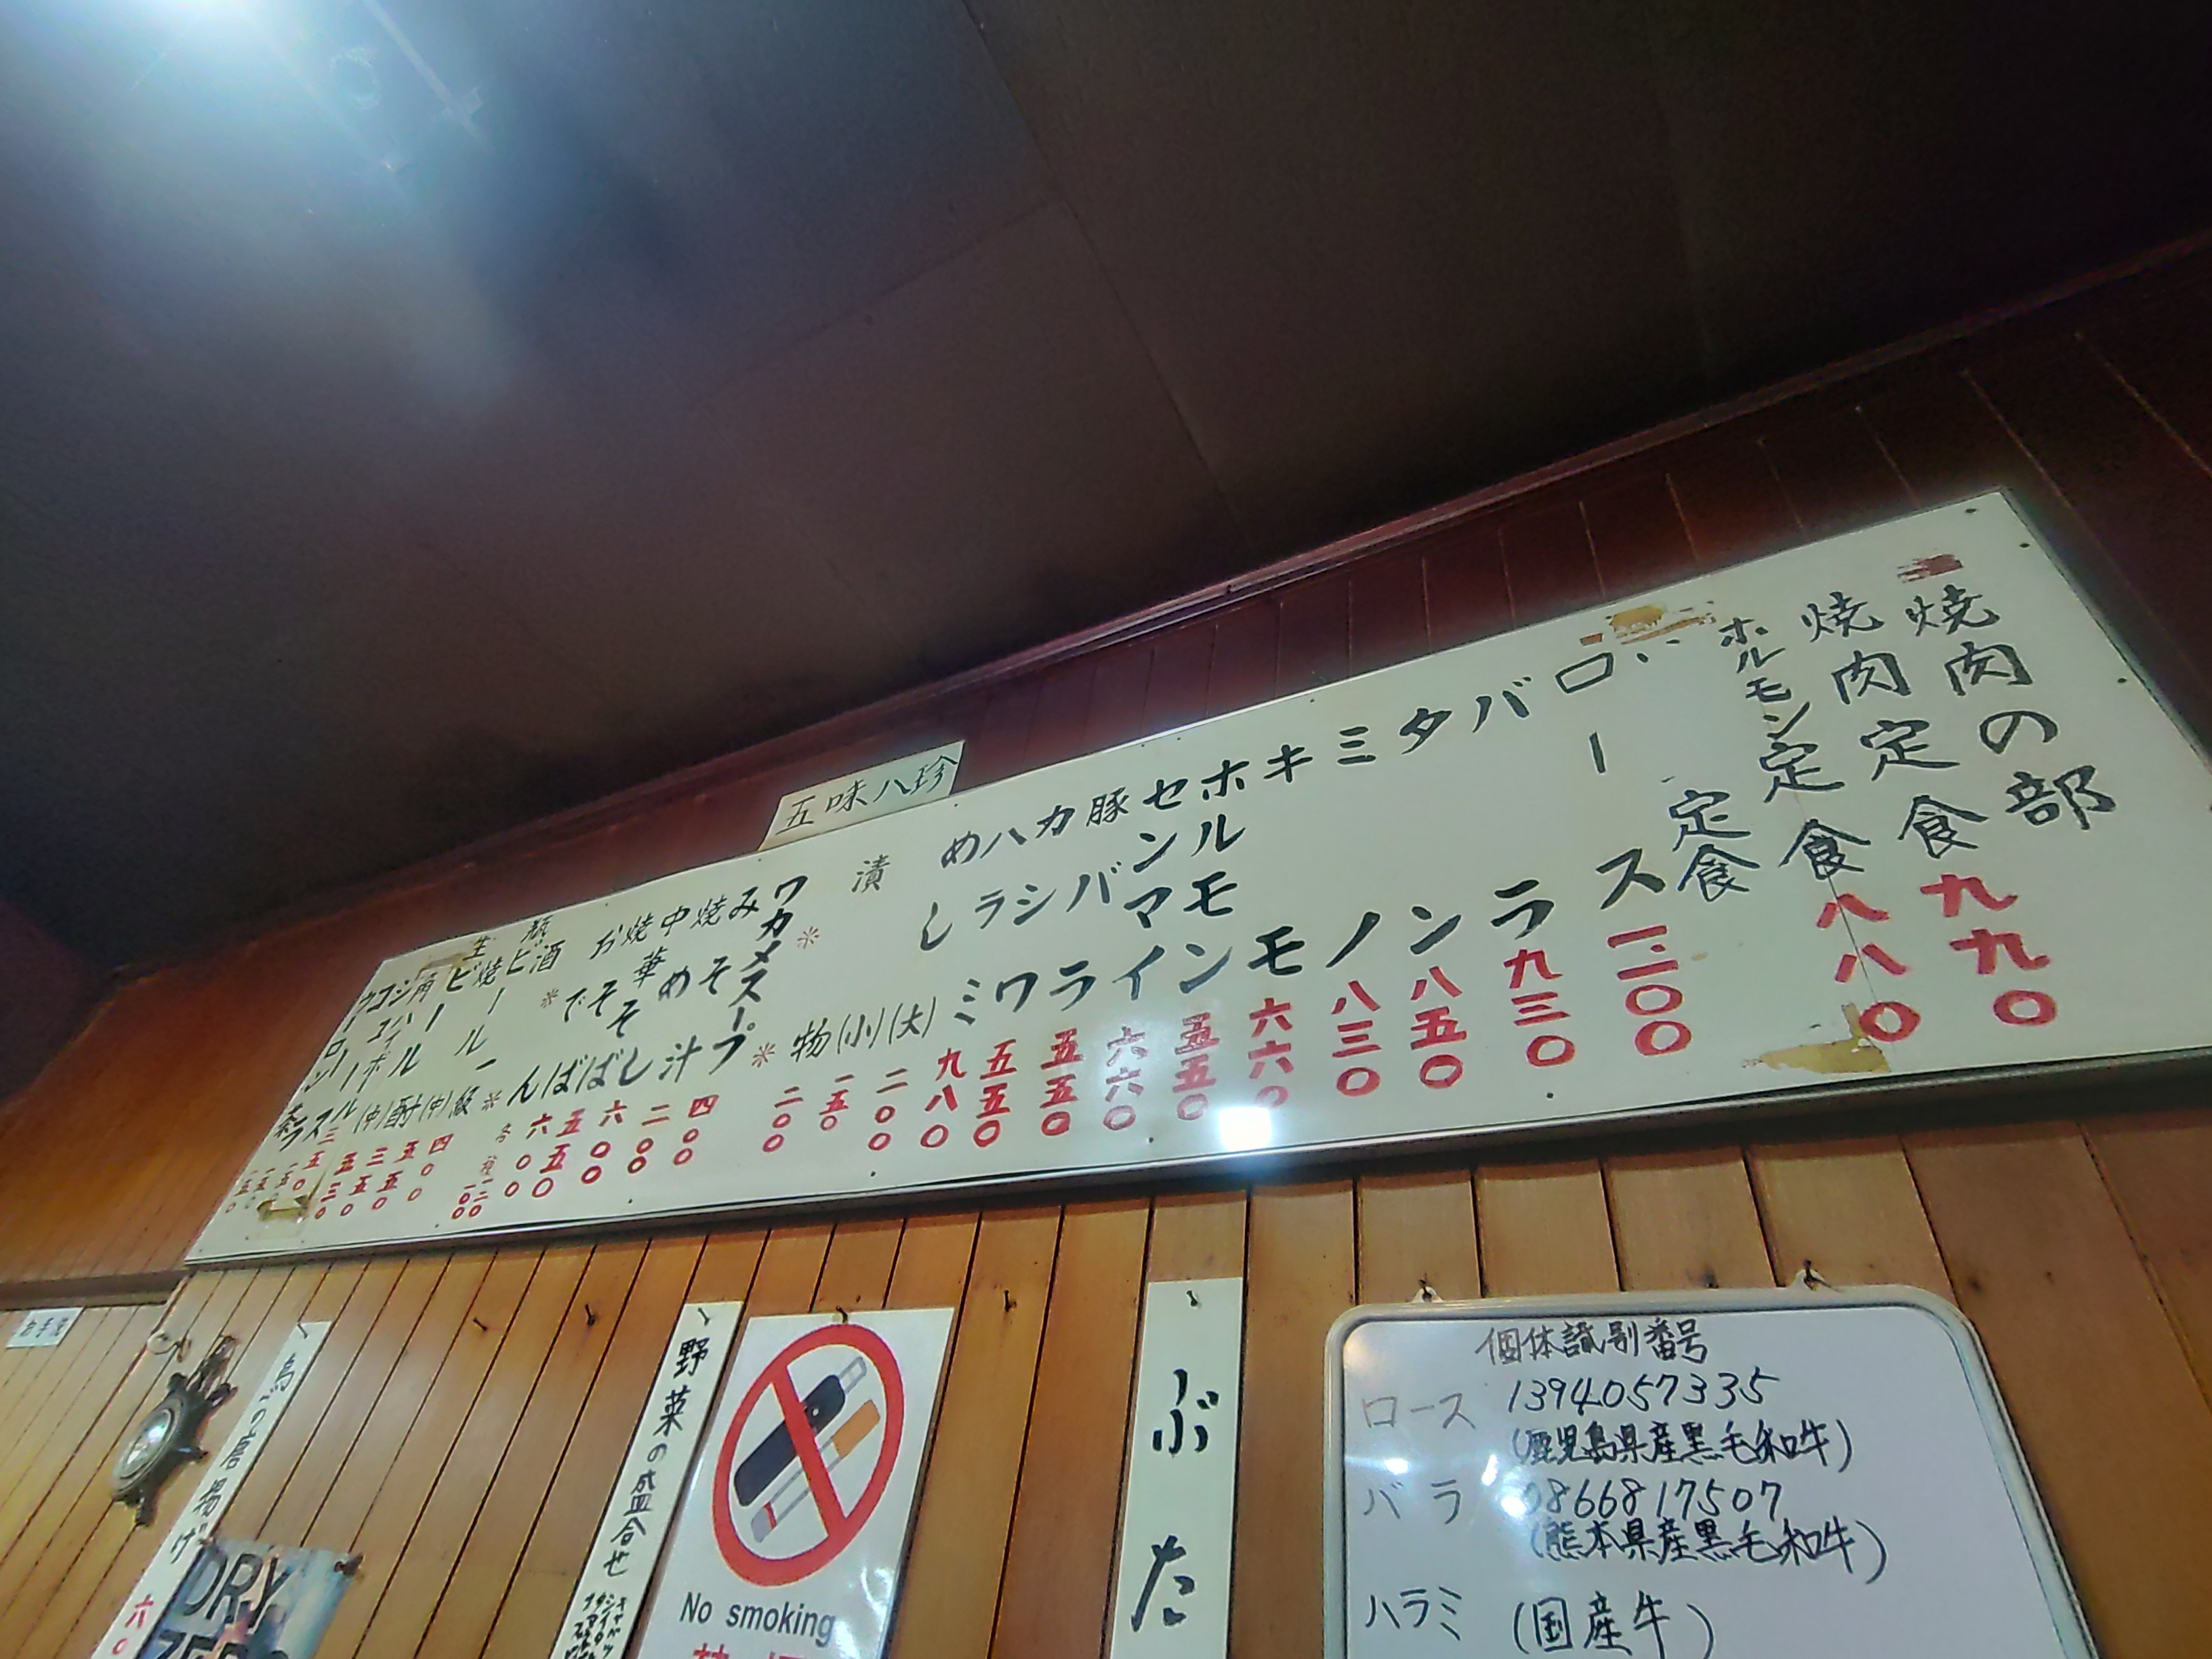 焼肉の部
焼肉定食 九九〇
焼肉定食 八八〇
ホルモン定食
定食
ロース 一二〇〇
バラ 九三〇
タン 八五〇
ミノ 八三〇
キモ 六六〇
ホルモン 五五〇
センマイ 六六〇
豚バラ 五五〇
カシワ 五五〇
ハラミ 九八〇
めし(大) 二〇〇
(小) 一五〇
漬物 二〇〇
※ ※
ワカメスープ 四〇〇
みそ汁 二〇〇
焼めし 六〇〇
中華そば 五五〇
焼そば 六〇〇
おでん 各種 一二〇
※ ※
酒
瓶ビール(中)
焼酎
生ビール(中)
角ハイボール
五味八珍
お手洗
鳥の唐揚げ 六〇
DRY
ZERO
野菜の盛合せ
キャベツ
No smoking
ぶた
個体識別番号
ロース 1394057335
(鹿児島県産黒毛和牛)
バラ 0866817507
(熊本県産黒毛和牛)
ハラミ (国産牛)